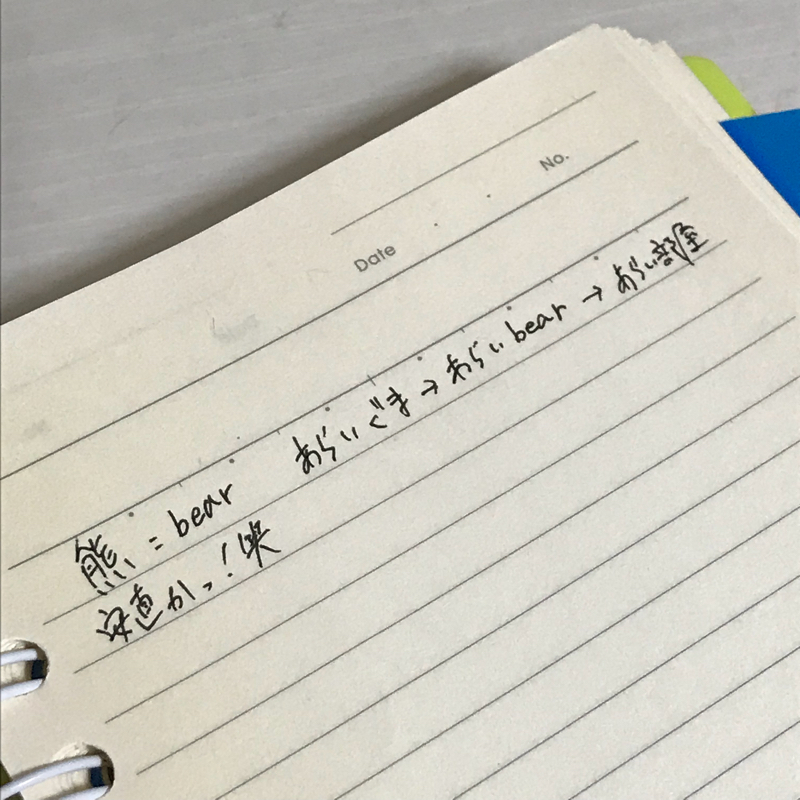 No.
Date
熊=bear あらいぐま→あらいbear→あらい部屋
安直かっ!笑